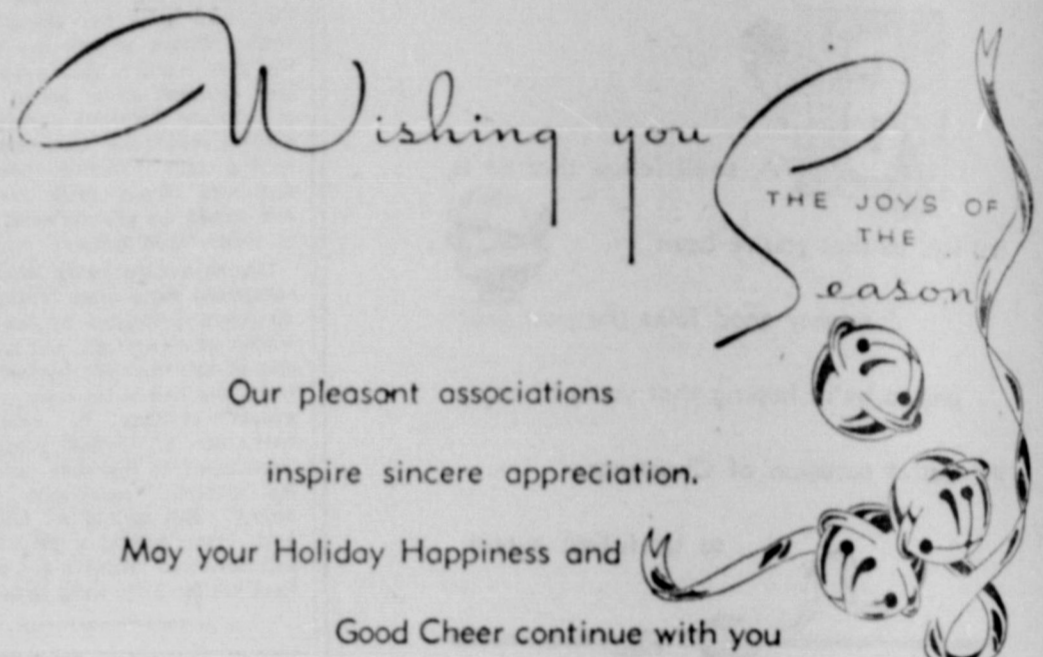 Wishing you
THE JOYS OF
THE
Season
Our pleasant associations
inspire sincere appreciation.
May your Holiday Happiness and
Good Cheer continue with you